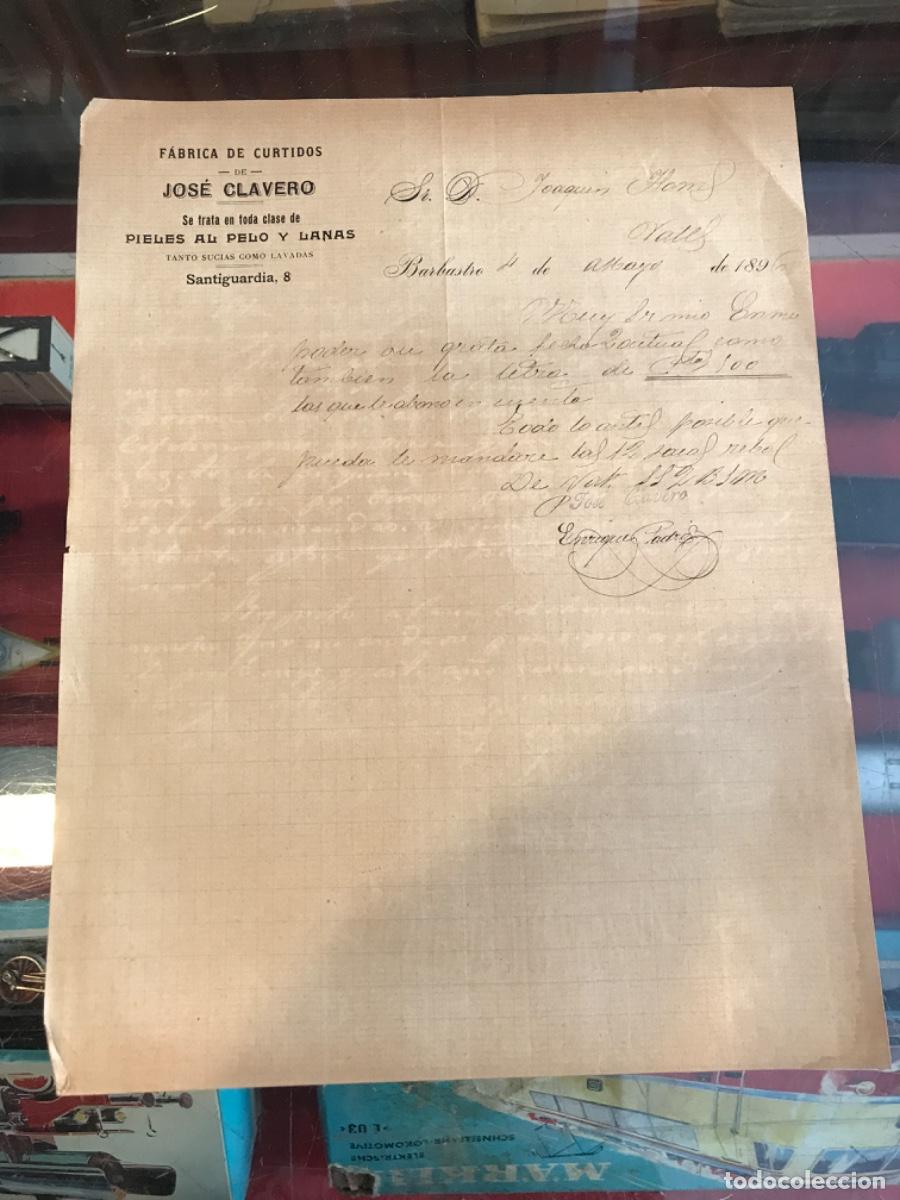 FÁBRICA DE CURTIDOS
— DE —
JOSÉ CLAVERO
Se trata en toda clase de
PIELES AL PELO Y LANAS
TANTO SUCIAS COMO LAVADAS
Santiguardia, 8
Sr. D. Joaquin Homs
Valls
Barbastro 4 de Mayo de 1896
Muy Sr mio Enmi
poder su grata fecha 2 actual como
tambien la letra de Ptas 500
las que le abono en cuenta
Todo lo antes posible que
pueda le mandare las 12 sacas
De Vd. SS Q B S M
P José Clavero
Enrique
E U3
SCHNELLZUG-LOKOMOTIVE
ELEKTRISCHE
MARKLIN
todocoleccion